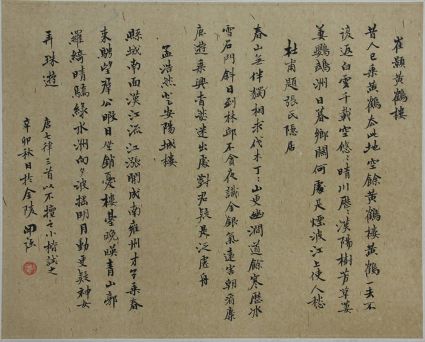 崔顥黃鶴樓
昔人已乘黃鶴去此地空餘黃鶴樓黃鶴一去不
復返白雲千載空悠々晴川歷々漢陽樹芳草萋
萋鸚鵡洲日暮鄉關何處是煙波江上使人愁
杜甫題張氏隱居
春山無伴獨相求伐木丁々山更幽澗道餘寒歷冰
雪石門斜日到林邱不貪夜識金銀氣遠害朝看麋
鹿遊乘興杳然迷出處對君疑是泛虛舟
孟浩然登安陽城樓
縣城南面漢江流江漲開成南雍州才子乘春
來騁望群公暇日坐銷憂樓臺晚映青山郭
羅綺晴驕綠水洲向夕波搖明月動更疑神女
弄珠遊
唐七律三首以不擅之小楷試之
辛卯秋日於金陵